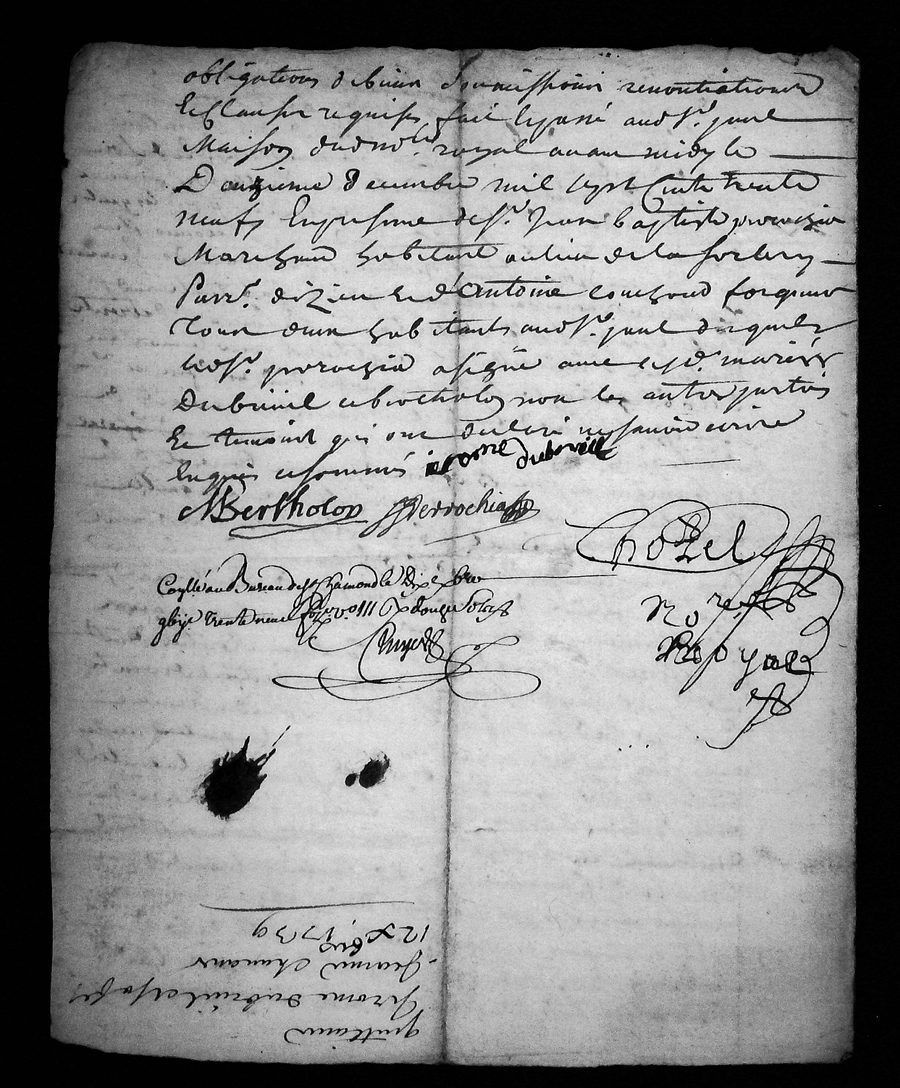 obligations de biens soumissions renontiations
Et clauses requises fait et passé aud St. paul
Maison dud no.re royal avant midy le
Douzieme decembre mil sept Cents trente
neufs En presence de Sr. Jean baptiste perrochia
Marchand habitant au lieu de la
Parr. d'izieu et d'Antoine
Tour deux habitants aud St. paul desquels
led Sr. perrochia a signé avec lesd. mariés
Dubreuil et bertholon non les autres parties
Et temoins qui ont declaré ne savoir écrire
Enquis et sommés jerome dubreuil
MBertholon JJPerrochia
Chozel
No.re
Royal
Con.llé au Bureau de St. chamond le Dix xbre
gbijc trente neuf fo. vo. 111 R douze sols
quittance
Jerome dubreuil
Jeanne
12 xbre 1739